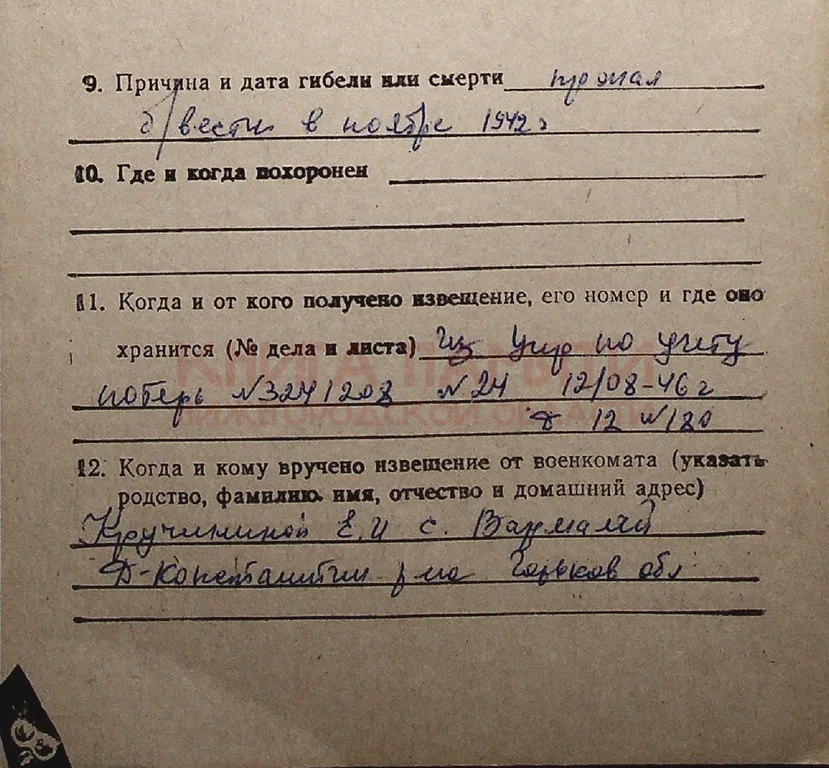 9. Причина и дата гибели или смерти пропал
б/вести в ноябре 1942 г
10. Где и когда похоронен
11. Когда и от кого получено извещение, его номер и где оно
хранится (№ дела и листа) Из Упр по учету
потерь №3241208 №24 12/08-46 г
12 №180
12. Когда и кому вручено извещение от военкомата (указать
родство, фамилию, имя, отчество и домашний адрес)
Кручининой Е.И с. Вармалей
Д-Константин р-на Горьков обл
КНИГА ПАМЯТИ
НИЖЕГОРОДСКОЙ ОБЛАСТИ